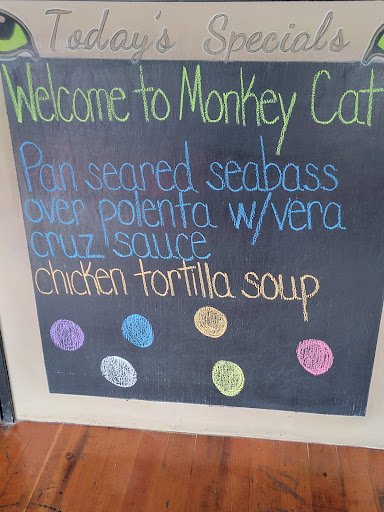 Today's Specials
Welcome to Monkey Cat
Pan seared seabass
over polenta w/vera
cruz sauce
chicken tortilla soup